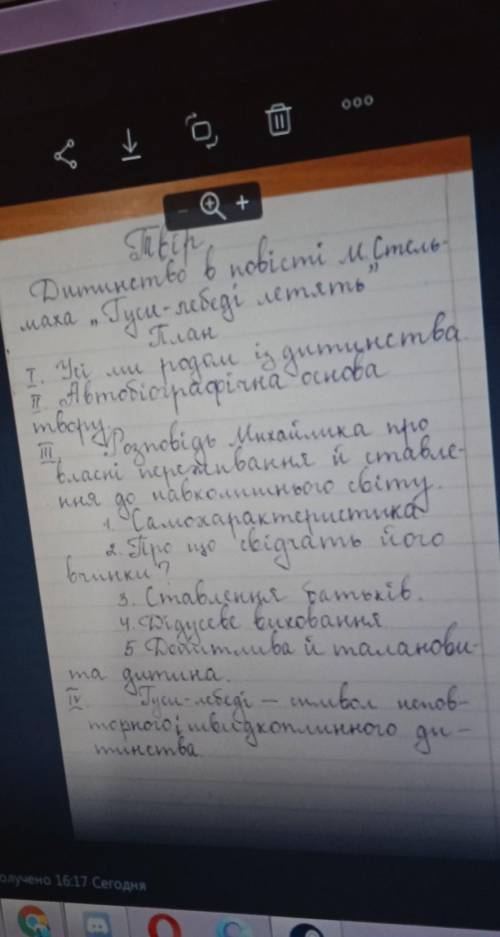 Твір
Дитинство в повісті М.Стель-
маха „Гуси-лебеді летять"
План
I. Усі ми родом із дитинства
II. Автобіографічна основа
твору.
III. Розповідь Михайлика про
власні переживання й ставле-
ння до навколишнього світу.
1. Самохарактеристика
2. Про що свідчать його
вчинки?
3. Ставлення батьків.
4. Дідусеве виховання.
5 Допитлива й талонови-
та дитина.
IV. Гуси-лебеді – символ непов-
торного і швидкоплинного ди-
тинства
олучено 16:17 Сегодня